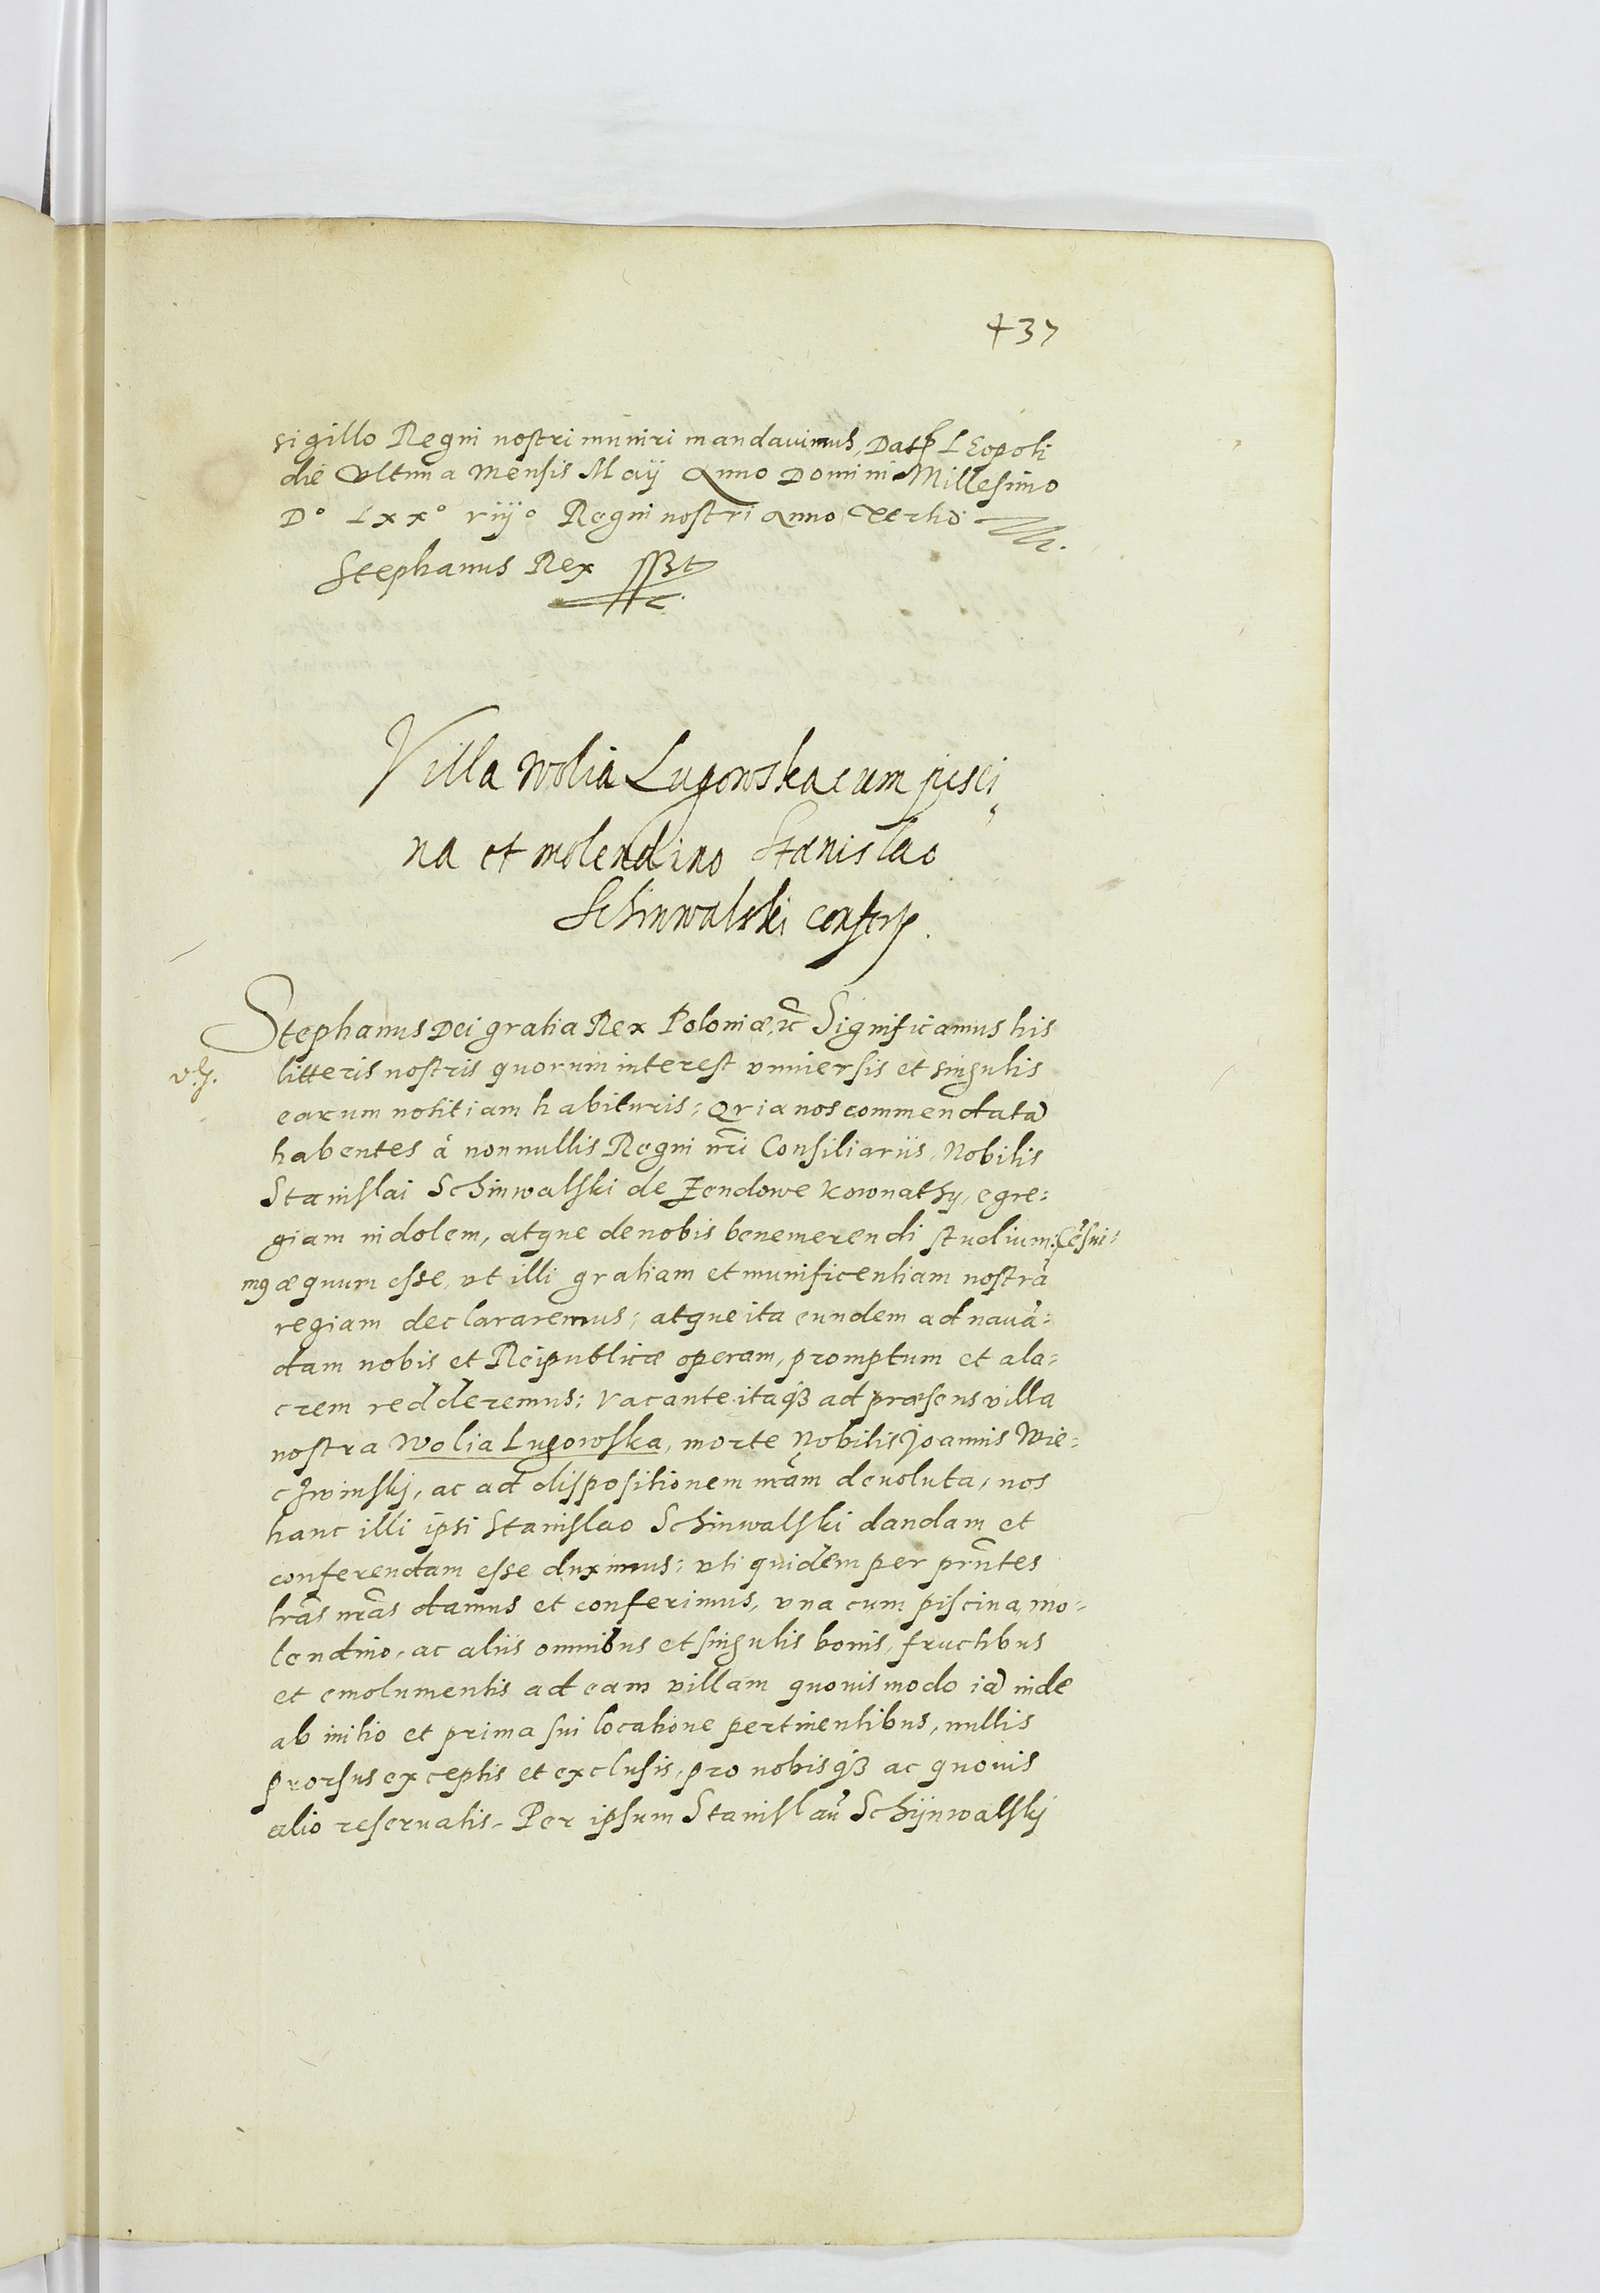 437
sigillo Regni nostri muniri mandauimus, Datp LEopoli
die Vltima Mensis Maij Anno Domini Millesimo
D° Lxx° viij° Regni nostri Anno Tertio
Stephanus Rex
Villa Wolia Lugowska cum pisci
na et molendino Stanislao
Schinwalski
Stephanus Dei gratia Rex Poloniæ, etc Significamus his
litteris nostris quorum interest vniuersis et singulis
earum notitiam habituris: Quia nos commendatā
habentes à nonnullis Regni nr̄i Consiliariis, Nobilis
Stanislai Schinwalski de Zendowe Kownathy, egre=
giam indolem, atque de nobis benemerendi studium: Cēsui=
mꝰ æquum esse, vt illi gratiam et munificentiam nostrā
regiam declararemus; atque ita eundem ad nauā=
dam nobis et Reipublicæ operam, promptum et ala=
crem redderemus: Vacante itaqꝫ ad præsens villa
nostra Wolia Lugowska, morte Nobilis Joannis Wie=
czwinskj, ac ad dispositionem nr̄am deuoluta, nos
hanc illi ipsi Stanislao Schinwalski dandam et
conferendam esse duximus: vti quidem per prn̄tes
lr̄as nr̄as damus et conferimus, vna cum piscina, mo=
lendino, ac aliis omnibus et singulis bonis, fructibus
et emolumentis ad eam villam quouis modo iā inde
ab initio et prima sui locatione pertinentibus, nullis
prorsus exceptis et exclusis, pro nobisqꝫ ac quouis
alio reseruatis. Per ipsum Stanislaū Schijnwalskj